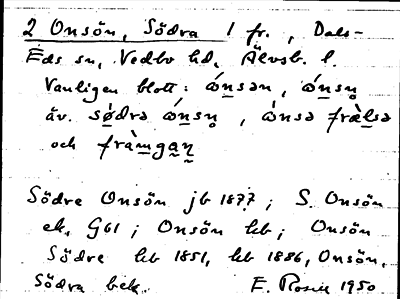 2 Onsön, Södra 1 fr., Dals-
Eds sn, Vedbo hd, Älvsb. l.
Vanligen blott: ώnsən, ώnsn̥
äv. sø̀drə ώnsn̥, ώnsə fràlsə
och fràmgan
Södre Onsön jb 1877; S. Onsön
ek. G61; Onsön kb; Onsön
Södre kb 1851, kb 1886, Onsön,
Södra bek. E. Rosell 1950